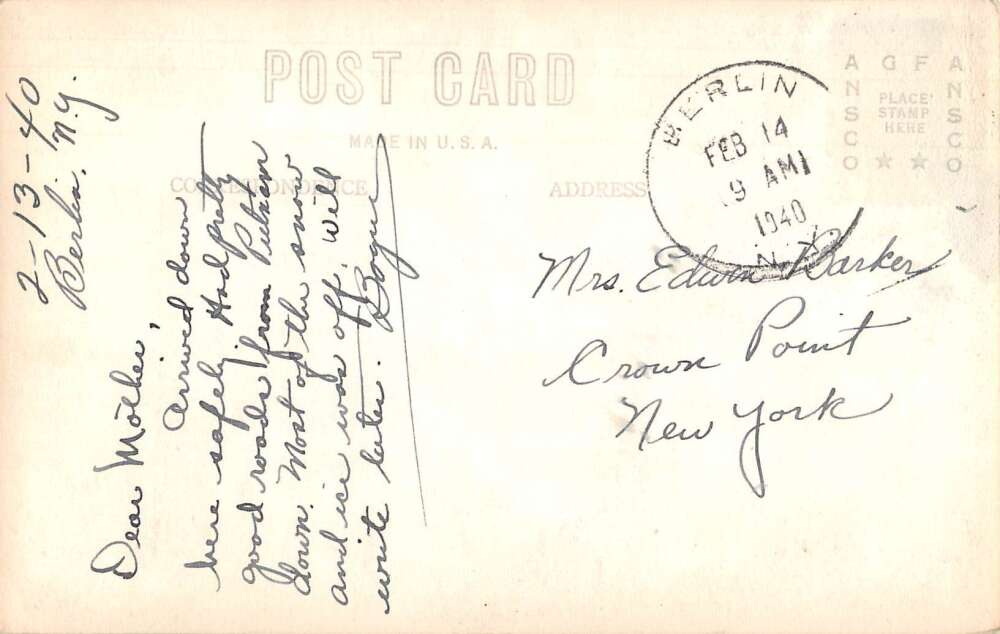 POST CARD
MADE IN U.S.A.
CORRESPONDENCE
ADDRESS
BERLIN
FEB 14
9 AM
1940
N.Y.
ANSCO
AGFA
ANSCO
PLACE
STAMP
HERE
2-13-40
Berlin, N.Y.
Dear Mother,
Arrived down
here safely. Had pretty
good roads from Putnam
down. Most of the snow
and ice was off. Will
write later.
Mrs. Edwin Barker
Crown Point
New York